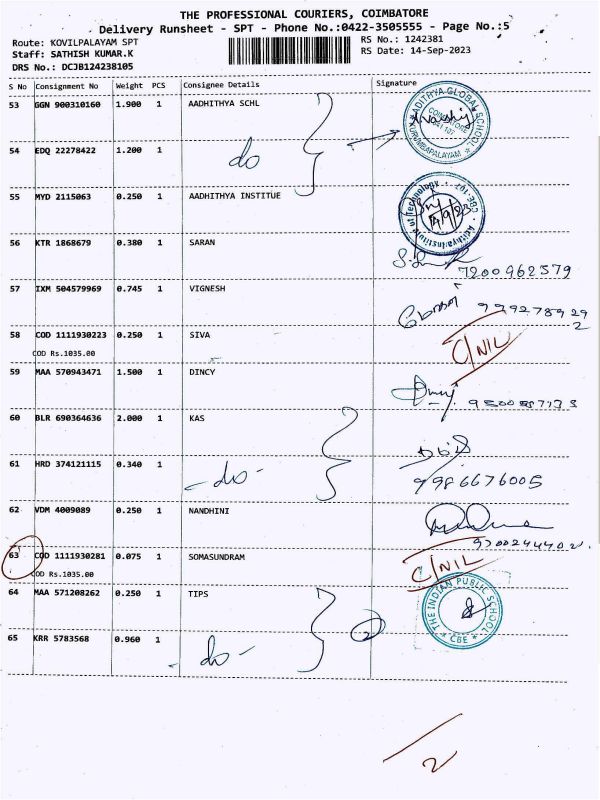 THE PROFESSIONAL COURIERS, COIMBATORE
Delivery Runsheet - SPT - Phone No.:0422-3505555 - Page No.:5
Route: KOVILPALAYAM SPT
Staff: SATHISH KUMAR.K
DRS No.: DCJB124238105
RS No.: 1242381
RS Date: 14-Sep-2023
S No Consignment No Weight PCS Consignee Details Signature
53 GGN 900310160 1.900 1 AADHITHYA SCHL
ADITHYA GLOBAL SCHOOL
COIMBATORE
KURUMBAPALAYAM
54 EDQ 22278422 1.200 1 do
55 MYD 2115063 0.250 1 AADHITHYA INSTITUE
Adithya Institute of Technology CBE-107
14/9/23
56 KTR 1868679 0.380 1 SARAN
7200962579
57 IXM 504579969 0.745 1 VIGNESH
58 COD 1111930223 0.250 1 SIVA
C/NIL
COD Rs.1035.00
59 MAA 570943471 1.500 1 DINCY
60 BLR 690364636 2.000 1 KAS
61 HRD 374121115 0.340 1 -do-
9986676005
62 VDM 4009089 0.250 1 NANDHINI
63 COD 1111930281 0.075 1 SOMASUNDRAM
C/NIL
COD Rs.1035.00
64 MAA 571208262 0.250 1 TIPS
THE INDIAN PUBLIC SCHOOL
CBE
2
65 KRR 5783568 0.960 1 -do-
2